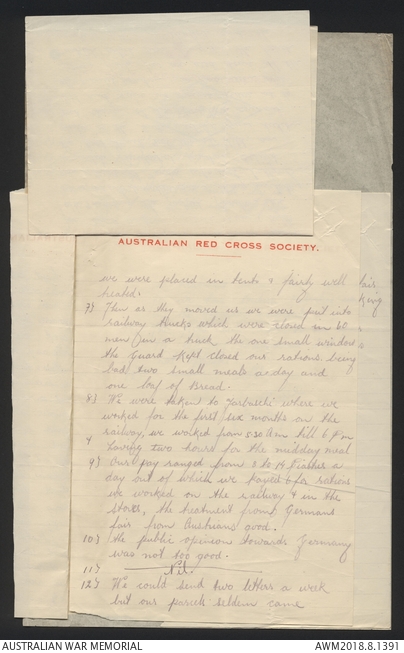 AUSTRALIAN RED CROSS SOCIETY.
we were placed in tents & fairly well
treated.
7) Then as they moved us we were put into
railway trucks which were closed in 60
men in a truck the one small window
the Guard kept closed our rations being
bad two small meals a day and
one loaf of Bread.
8) We were taken to where we
worked for the first six months on the
railway, we worked from 5.30 am till 6 Pm
having two hours for the midday meal
9) Our pay ranged from to a
day out of which we payed 6 for rations
we worked on the railway & in the
stores, the treatment from Germans
fair from Austrians good.
10) the public opinion towards Germany
was not too good.
11) Nil.
12) We could send two letters a week
but our parcels seldom came
fair
king
AUSTRALIAN WAR MEMORIAL
AWM2018.8.1391